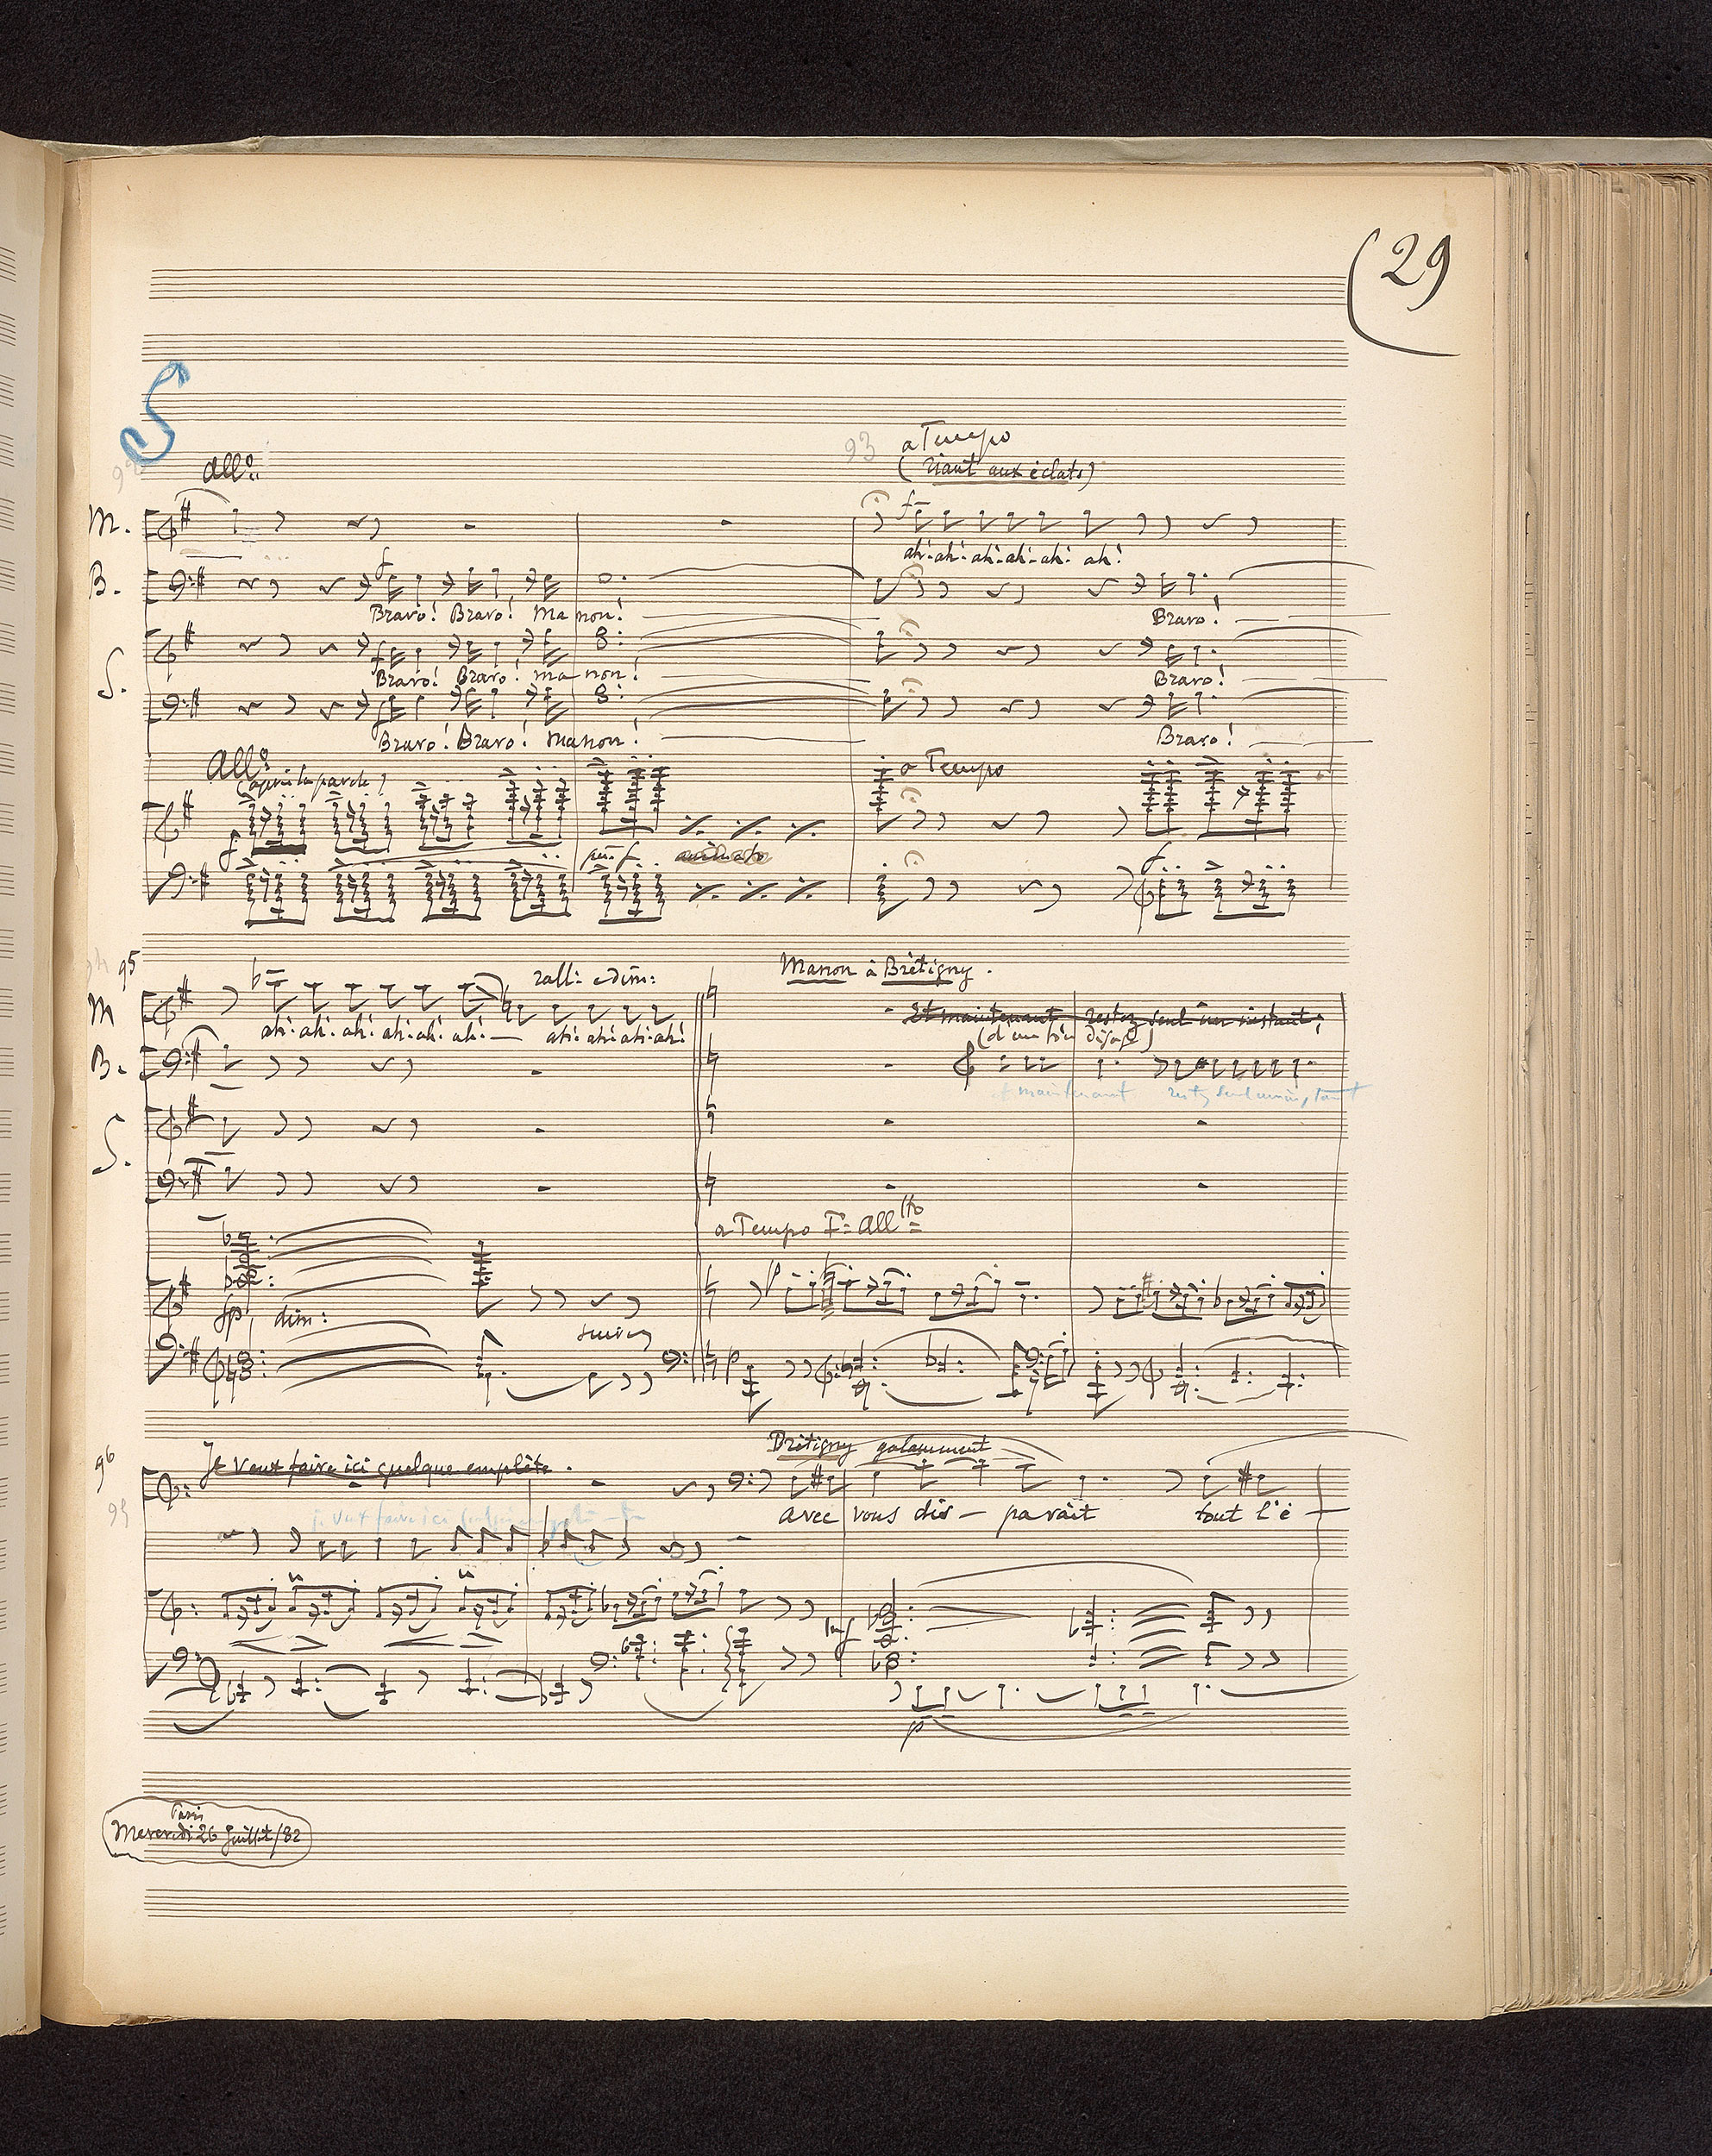 29
S
93
a Tempo
All:
(riant aux éclats)
M.
f
ah! ah! ah! ah! ah! ah!
B.
f
Bravo! Bravo! Manon!
Bravo!
S.
f
Bravo! Bravo! Manon!
Bravo!
f
Bravo! Bravo! Manon!
Bravo!
All:
(après la parole)
a Tempo
f
f
95
rall: e dim:
Manon à Brétigny.
M
ah! ah! ah! ah! ah! ah! — ah! ah! ah! ah!
Et maintenant restez seul un instant;
B.
et maintenant restez seul un instant
S.
a Tempo I: All tto
fp dim:
suivez
p
p
96
Je veux faire ici quelque emplète.
Brétigny galamment
95
je veux faire ici
avec vous dis - paraît tout l'é -
p
Paris
Mercredi 26 Juillet/82